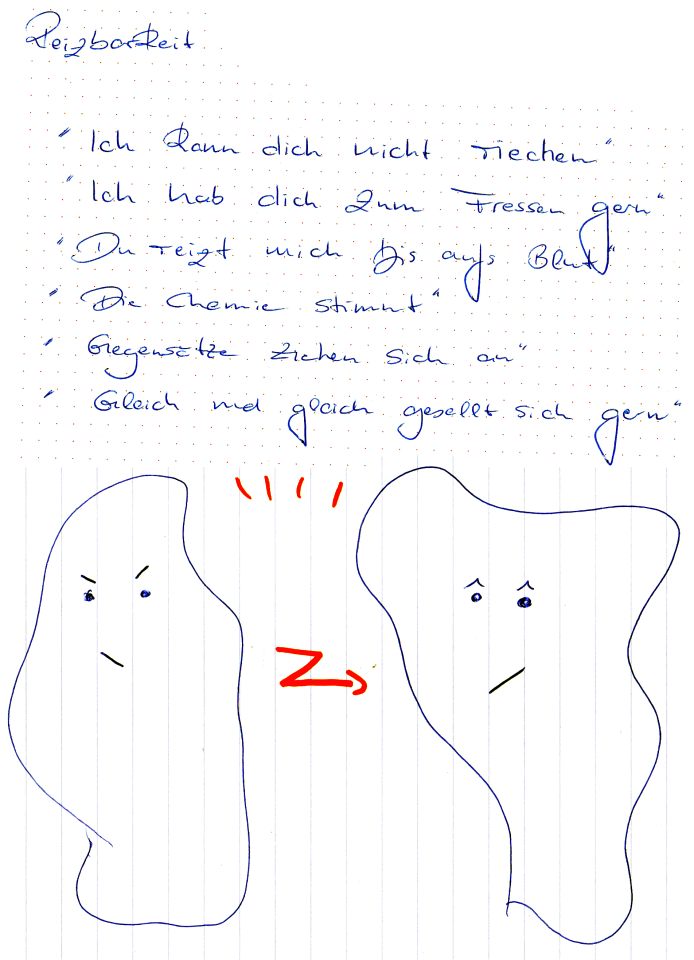 Reizbarkeit
"Ich kann dich nicht riechen"
"Ich hab dich zum Fressen gern"
"Du reizt mich bis aufs Blut"
"Die Chemie stimmt"
"Gegensätze ziehen sich an"
"Gleich und gleich gesellt sich gern"